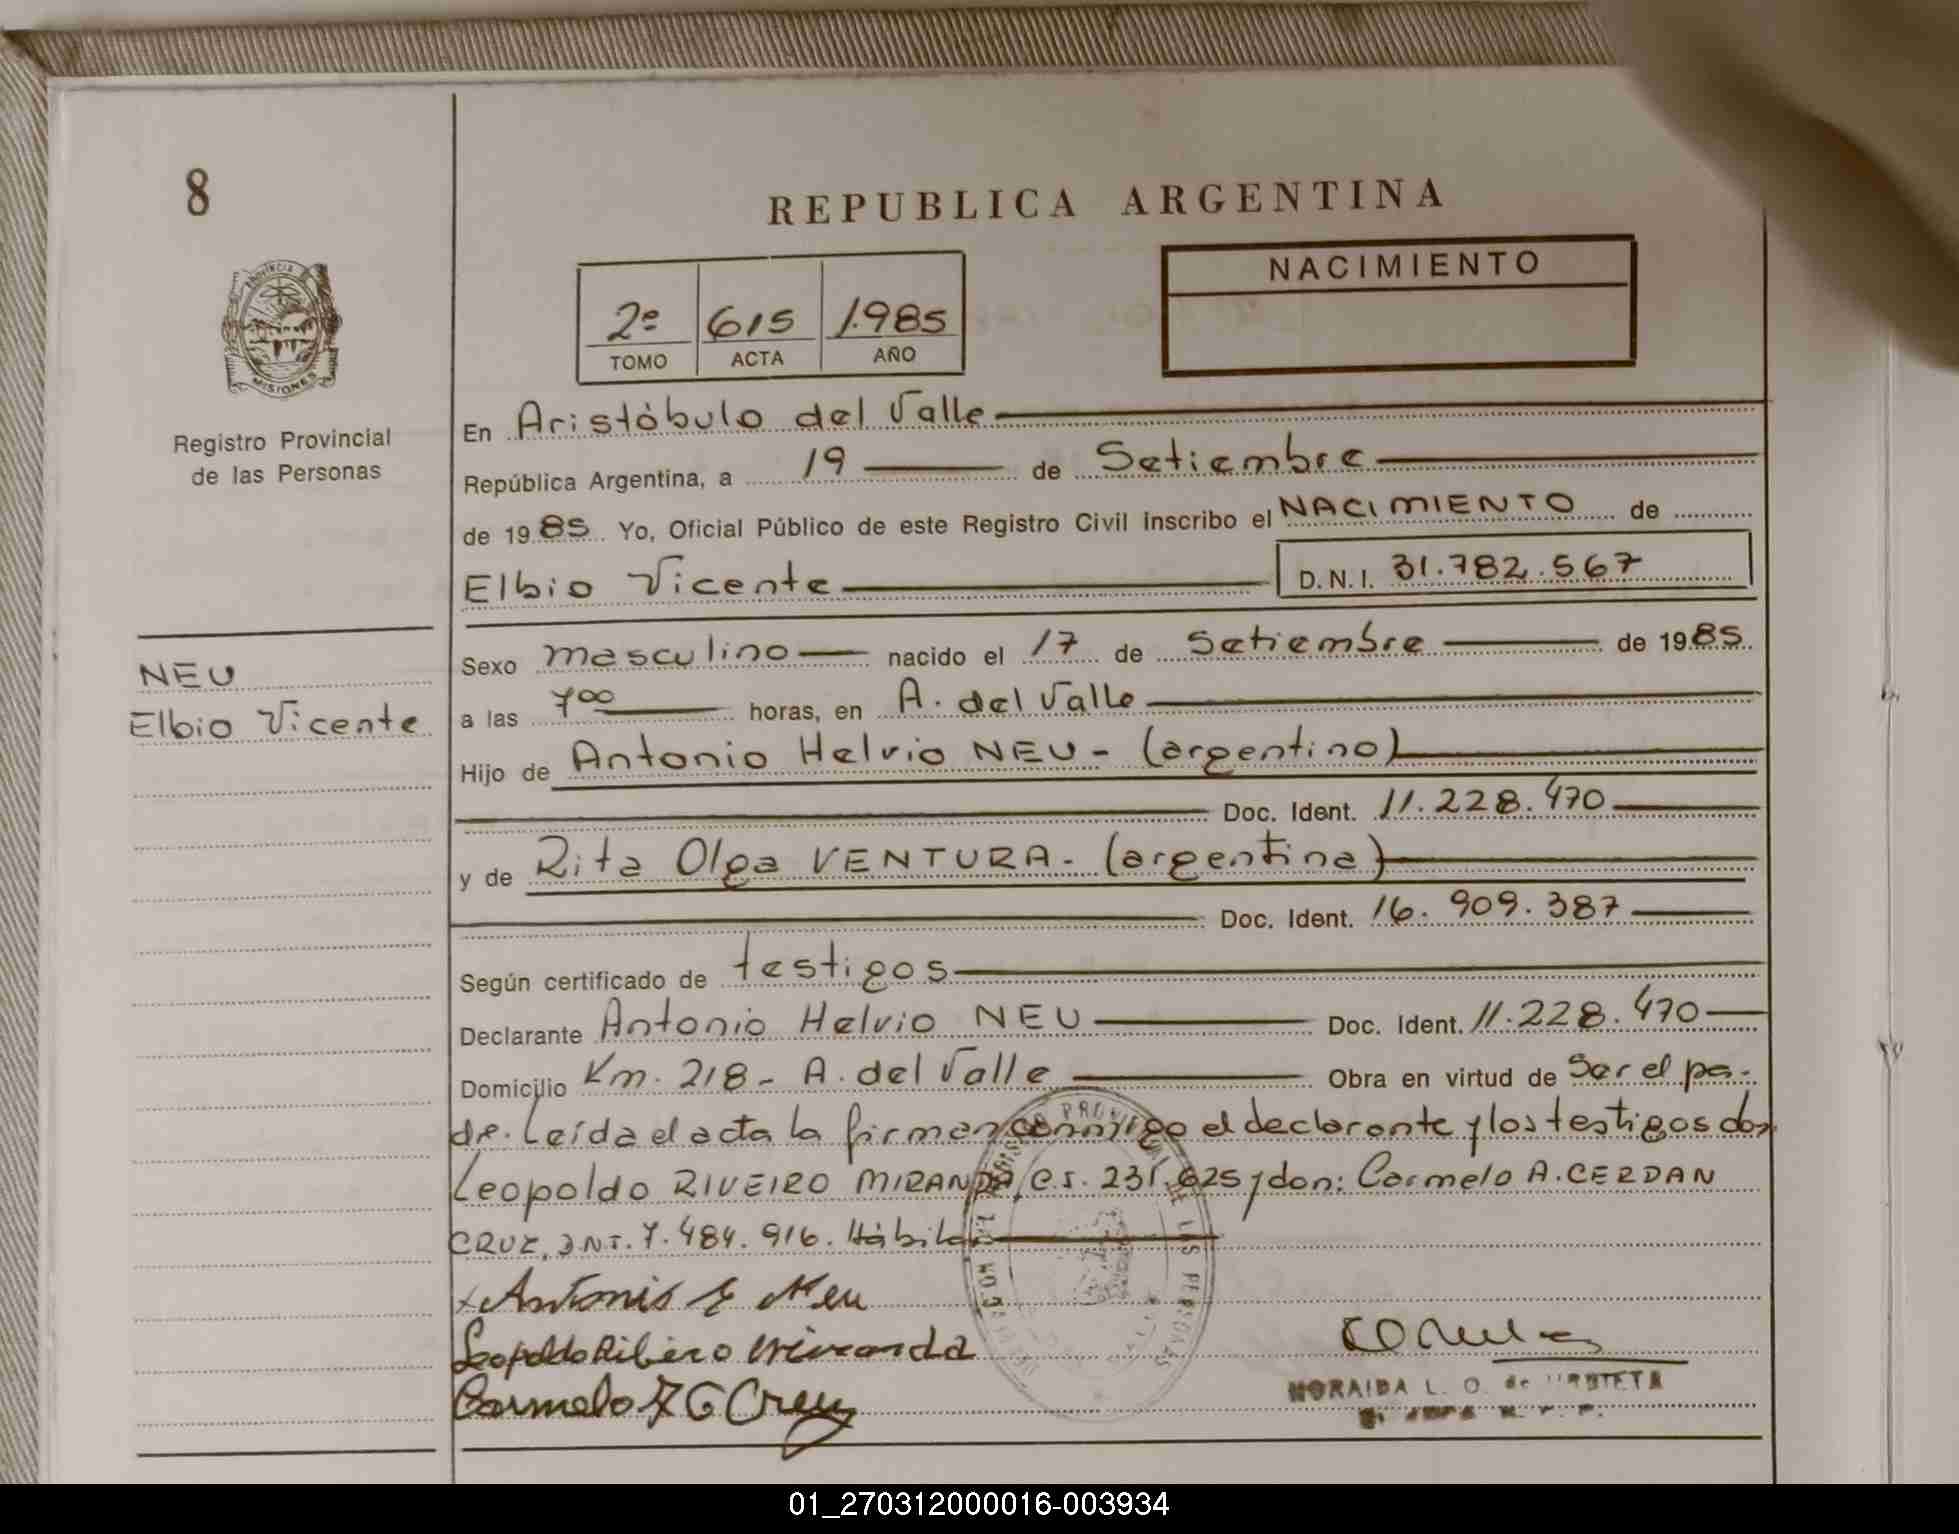 8
REPUBLICA ARGENTINA
PROVINCIA
MISIONES
Registro Provincial
de las Personas
2º 615 1.985
TOMO ACTA AÑO
NACIMIENTO
En Aristóbulo del Valle
República Argentina, a 19 de Setiembre
de 1985. Yo, Oficial Público de este Registro Civil inscribo el NACIMIENTO de
Elbio Vicente D.N.I. 31.782.567
NEU
Elbio Vicente
Sexo masculino nacido el 17 de Setiembre de 1985.
a las 7⁰⁰ horas, en A. del Valle
Hijo de Antonio Helvio NEU - (argentino)
Doc. Ident. 11.228.470
y de Rita Olga VENTURA - (argentina)
Doc. Ident. 16.909.387
Según certificado de testigos
Declarante Antonio Helvio NEU Doc. Ident. 11.228.470
Domicilio Km. 218 - A. del Valle Obra en virtud de Ser el pa-
dre. Leída el acta la firman conmigo el declarante y los testigos don
Leopoldo RIVEIRO MIRANDA, C.I. 231.625 y don: Carmelo A. CERDAN
CRUZ, DNI. 7.484.916. Hábiles
Antonio E Neu
Leopoldo Ribeiro Miranda
Carmelo A C Cruz
NORAIDA L. O. de URBIETA
01_270312000016-003934